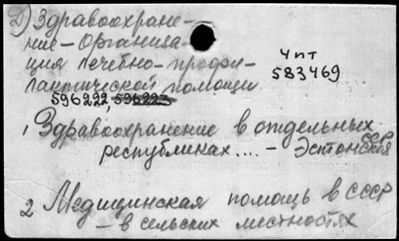 Д) Здравоохране-
ние - Организа-
ция лечебно-профи-
лактической помощи
4 пт
583469
596222, 596223
1 Здравоохранение в отдельных
республиках.... - Эстонская ССР
2 Медицинская помощь в СССР
- в сельских местностях